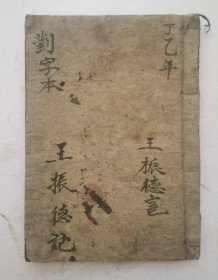 丁乙年
王振德言
對字本
王振德記